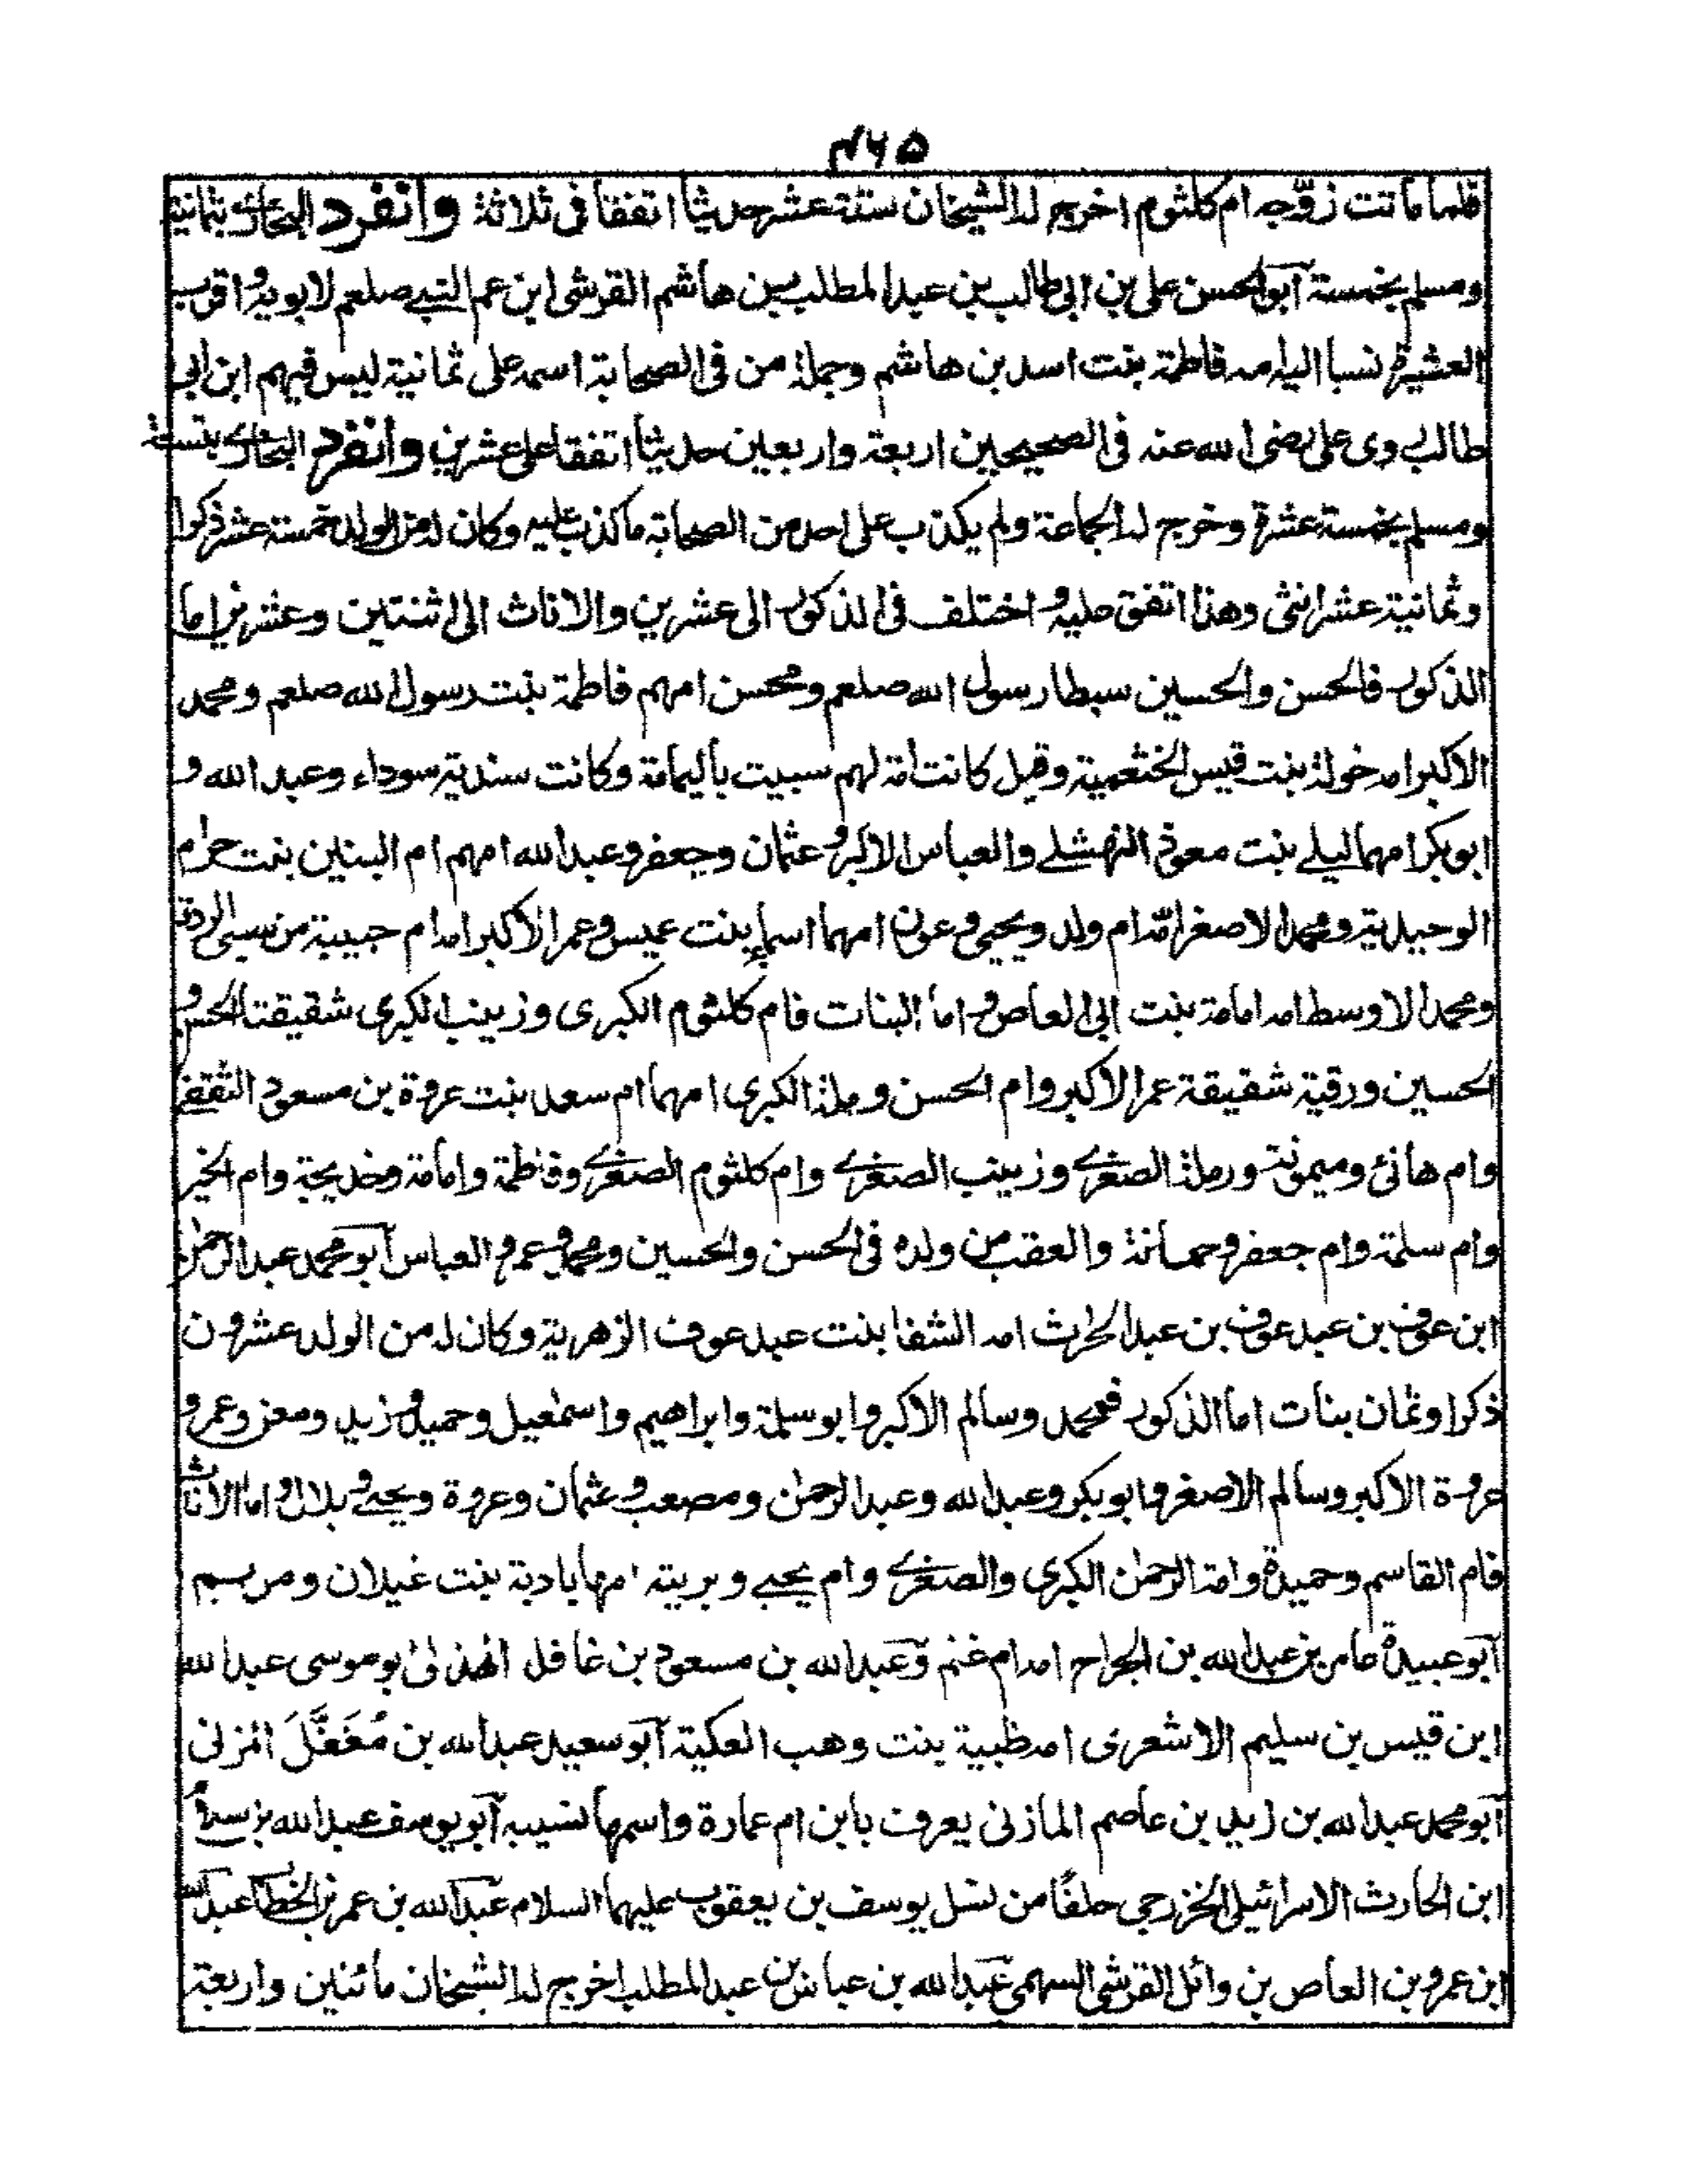 ۴۶۵
فلما ماتت زوّجه ام كلثوم اخرج له الشيخان ستة عشر حديثا اتفقا فى ثلاثة وانفرد البخارى بثمانية
ومسلم بخمسة ابو الحسن على بن ابى طالب بن عبد المطلب بن هاشم القرشى ابن عم النبى صلعم لابويه و اقرب
العشيرة نسبا اليه امه فاطمة بنت اسد بن هاشم وجملة من فى الصحابة اسمه على ثمانية ليس فيهم ابن ابى
طالب روى على رضى الله عنه فى الصحيحين اربعة واربعين حديثا اتفقا على عشرين وانفرد البخارى بتسعة
ومسلم بخمسة عشرة وخرج له الجماعة ولم يكذب على احد من الصحابة ما كذب عليه وكان له من الولد خمسة عشر ذكرا
وثمانية عشر انثى وهذا اتفق عليه و اختلف فى الذكور الى عشرين والاناث الى اثنتين وعشرين اما
الذكور فالحسن والحسين سبطا رسول الله صلعم ومحسن امهم فاطمة بنت رسول الله صلعم ومحمد
الاكبر امه خولة بنت قيس الخثعمية وقيل كانت امة لهم سبيت باليمامة وكانت سندية سوداء وعبد الله و
ابو بكر امهما ليلى بنت معوذ النهشلى والعباس الاكبر و عثمان وجعفر وعبد الله امهم ام البنين بنت حرام
الوحيدية ومحمد الاصغر امه ام ولد ويحيى وعون امهما اسماء بنت عميس وعمر الاكبر امه ام حبيبة من سبى الردة
ومحمد الاوسط امه امامة بنت ابى العاص و اما البنات فام كلثوم الكبرى وزينب الكبرى شقيقتا الحسن و
الحسين ورقية شقيقة عمر الاكبر وام الحسن ورملة الكبرى امهما ام سعد بنت عروة بن مسعود الثقفى
وام هانئ وميمونة ورملة الصغرى وزينب الصغرى وام كلثوم الصغرى وفاطمة وامامة وخديجة وام الخير
وام سلمة وام جعفر وجمانة والعقب من ولده فى الحسن والحسين ومحمد و عمر و العباس ابو محمد عبد الرحمٰن
ابن عوف بن عبد عوف بن عبد الحٰرث امه الشفا بنت عبد عوف الزهرية وكان له من الولد عشرون
ذكرا وثمان بنات اما الذكور فمحمد وسالم الاكبر وابو سلمة وابراهيم واسمٰعيل وحميد و زيد ومعن وعمر و
عروة الاكبر وسالم الاصغر وابو بكر وعبد الله وعبد الرحمٰن ومصعب و عثمان وعروة ويحيى و بلال و اما الاناث
فام القاسم وحميدة وامة الرحمٰن الكبرى والصغرى وام يحيى وبريته امها بادية بنت غيلان ومريم
ابو عبيدة عامر بن عبد الله بن الجراح امه ام غنم وعبد الله بن مسعود بن غافل الهذلى ابو موسى عبد الله
ابن قيس بن سليم الاشعرى امه ظبية بنت وهب العكية ابو سعيد عبد الله بن مُغَفَّلَ المزنى
ابو محمد عبد الله بن زيد بن عاصم المازنى يعرف بابن ام عمارة واسمها نسيبه ابو يوسف عبد الله بن سلام
ابن الحارث الاسرائيلى الخزرجى حلفًا من نسل يوسف بن يعقوب عليهما السلام عبد الله بن عمر بن الخطاب عبد الله
ابن عمرو بن العاص بن وائل القرشى السهمى عبد الله بن عباس بن عبد المطلب اخرج له الشيخان مائتين واربعة